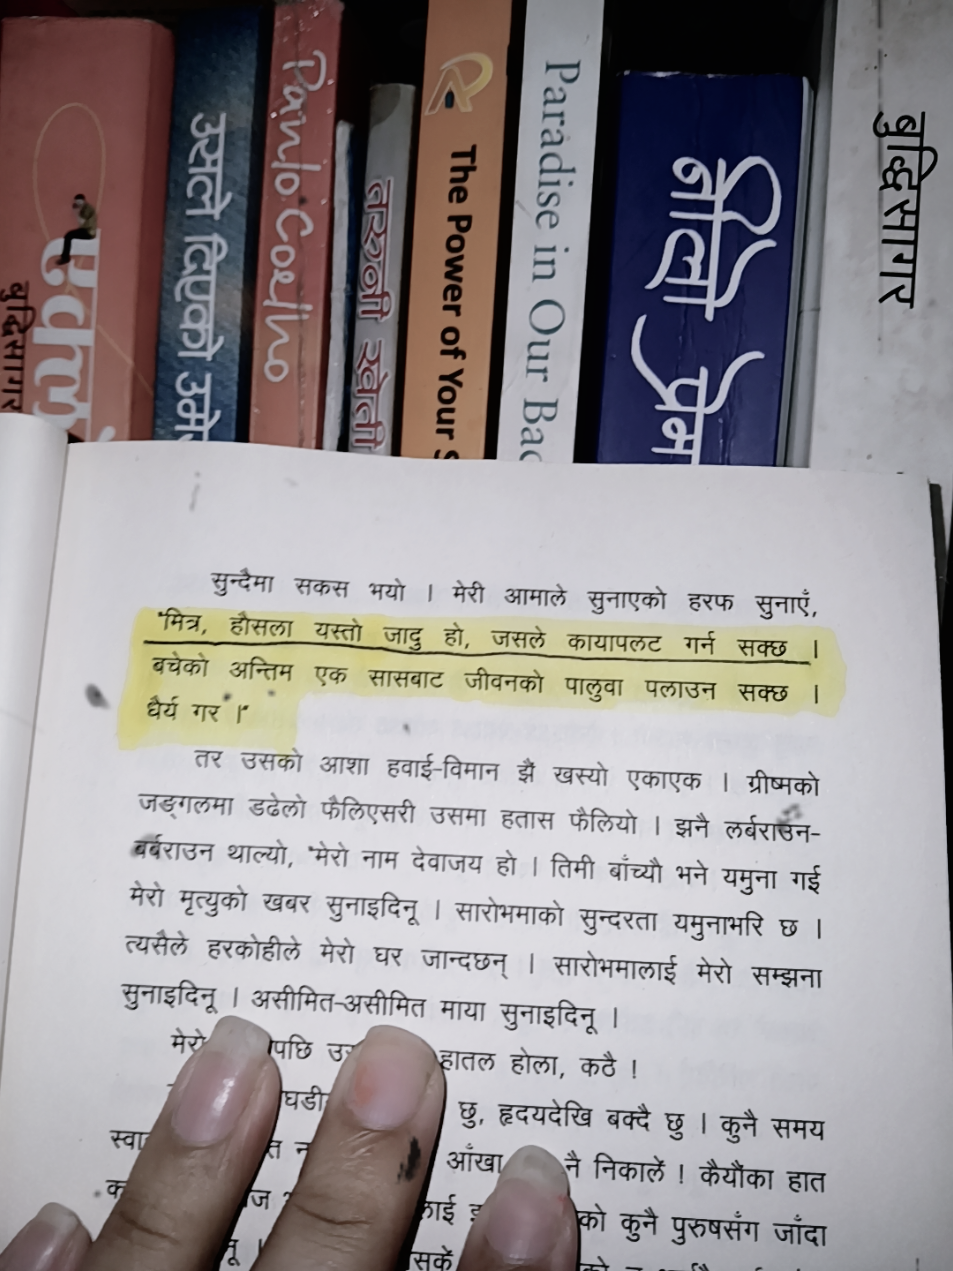 बुद्धिसागर
उसले दिएको
Paulo Coelho
तरुनी खेती
The Power of Your
Paradise in Our
नीलो प्रेम
बुद्धिसागर
सुन्दैमा सकस भयो । मेरी आमाले सुनाएको हरफ सुनाएँ,
"मित्र, हौसला यस्तो जादु हो, जसले कायापलट गर्न सक्छ ।
बचेको अन्तिम एक सासबाट जीवनको पालुवा पलाउन सक्छ ।
धैर्य गर ।"
तर उसको आशा हवाई-विमान झैं खस्यो एकाएक । ग्रीष्मको
जङ्गलमा डढेलो फैलिएसरी उसमा हतास फैलियो । झनै लर्बराउन-
बर्बराउन थाल्यो, "मेरो नाम देवाजय हो । तिमी बाँच्यौ भने यमुना गई
मेरो मृत्युको खबर सुनाइदिनू । सारोभमाको सुन्दरता यमुनाभरि छ ।
त्यसैले हरकोहीले मेरो घर जान्दछन् । सारोभमालाई मेरो सम्झना
सुनाइदिनू । असीमित-असीमित माया सुनाइदिनू ।
मेरो पछि हातल होला, कठै !
छु, हृदयदेखि बक्दै छु । कुनै समय
आँखा नै निकालें ! कैयौंका हात
को कुनै पुरुषसँग जाँदा